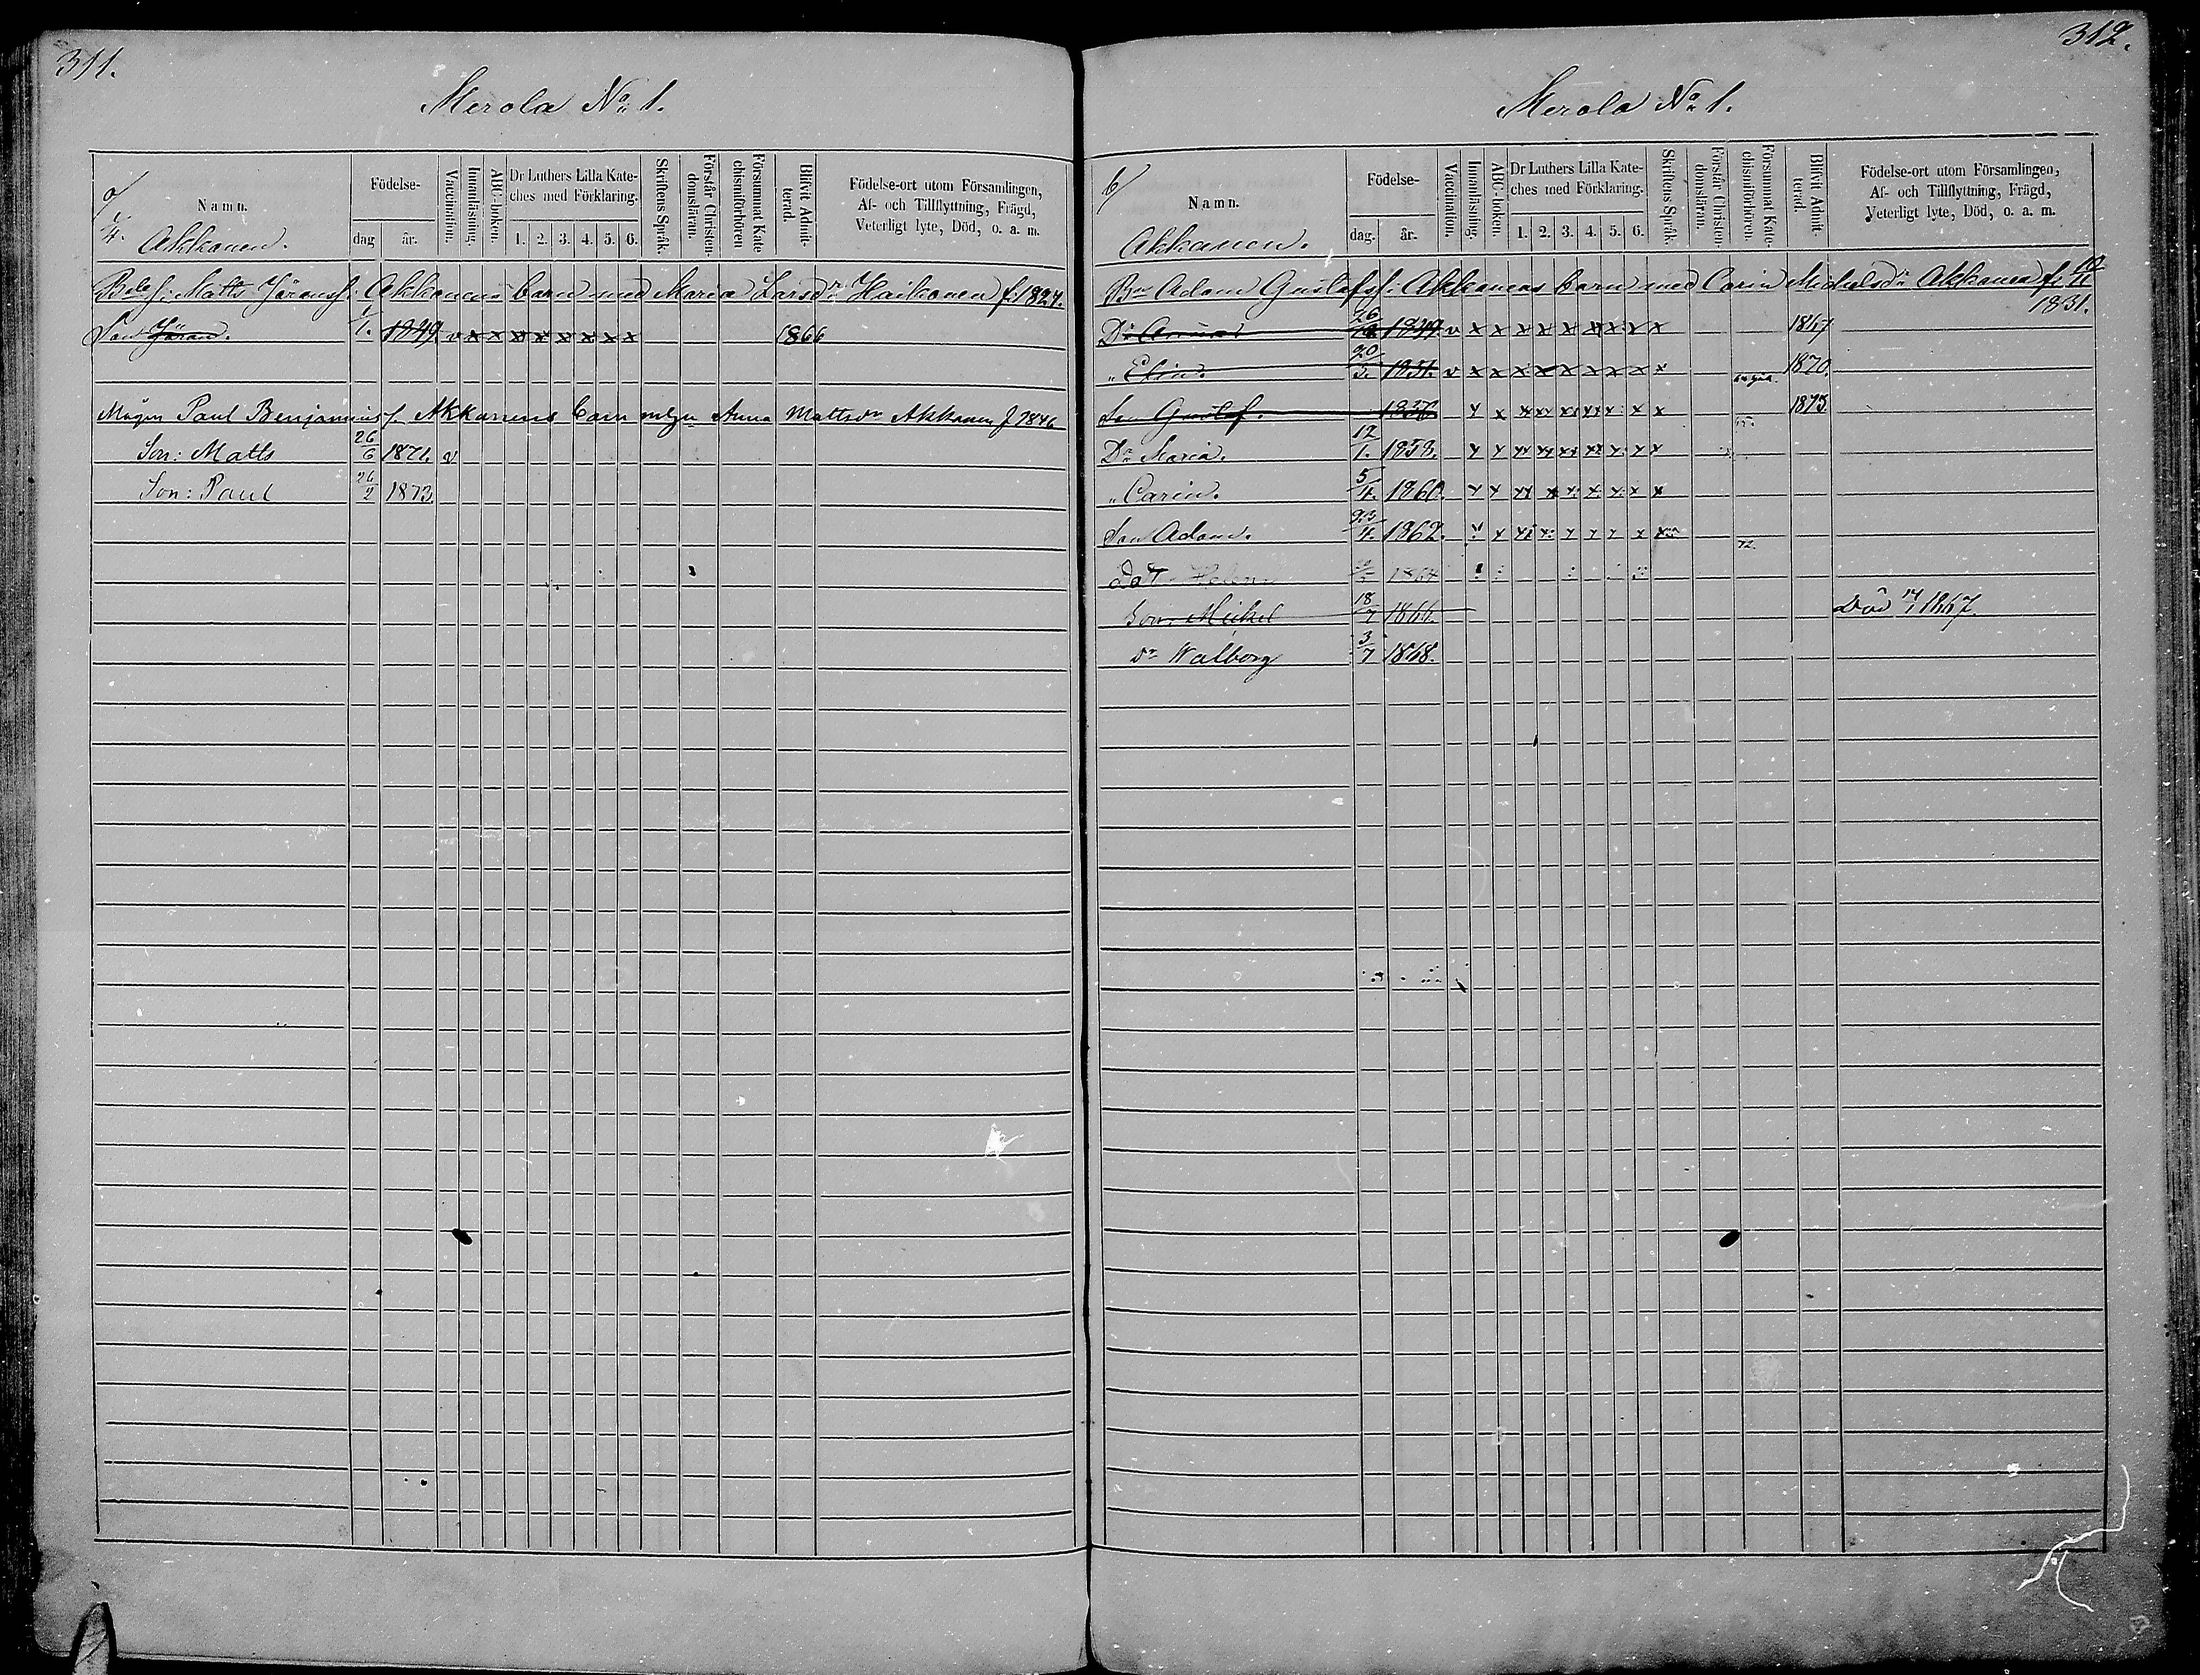 311.
Merola No 1.
a/
1/4.
Namn.
Akkanen.
Födelse-
dag år.
Vaccination.
Innanläsning.
ABC-boken.
Dr Luthers Lilla Kate-
ches med Förklaring.
1. 2. 3. 4. 5. 6.
Skriftens Språk.
Förstår Christen-
domsläran.
Försummat Kate
chismiförhören
Blifvit Admit-
terad.
Födelse-ort utom Församlingen,
Af- och Tillflyttning, Frägd,
Veterligt lyte, Död, o. a. m.
Matts Göranss: Akkanens barn med Maria Larsdr Haikonen f. 1824.
Son Göran. 1/1. 1849. v x x x x x x x x 1866
Mågen Paul Benjaminss. Akkanens barn m. Anna Mattsdr Akkanen f 1846
Son: Matts 26/6 1871. v
Son: Paul 26/2 1873.
312.
Merola No 1.
b/
Namn.
Akkanen.
Födelse-
dag. år.
Vaccination.
Innanläsning.
ABC-boken.
Dr Luthers Lilla Kate-
ches med Förklaring.
1. 2. 3. 4. 5. 6.
Skriftens Språk.
Förstår Christen-
domsläran.
Försummat Kate-
chismiförhören.
Blifvit Admit-
terad.
Födelse-ort utom Församlingen,
Af- och Tillflyttning, Frägd,
Veterligt lyte, Död, o. a. m.
Adam Gustafss: Akkanens barn med Carin Michelsdr Akkanen f:
1831.
Dr 26 1849 v x x x x x x x x x 1867
" Elin. 20/3. 1851. v x x x x x x x x x 1870.
Son Gustaf. 1856 x x x x x x x x x 1873.
Dr Maria. 12/1. 1858. x x x x x x x x x
" Carin. 5/4. 1860. x x x x x x x x x
Son Adam. 23/4. 1862. x x x x x x x x
72.
dot Helena 1864
Son: Michel 18/7 1866. Död 14/1 1867.
Dr Walborg 3/7 1868.